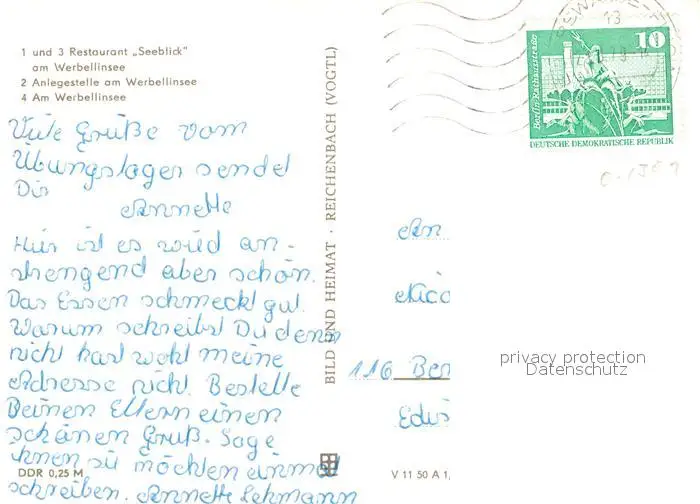 1 und 3 Restaurant „Seeblick"
am Werbellinsee
2 Anlegestelle am Werbellinsee
4 Am Werbellinsee
Viele Grüße vom
Übungslager sendet
Dir
Annette
Hier ist es wird an-
strengend aber schön.
Das Essen schmeckt gut.
Warum schreibst Du denn
nicht hast wohl meine
Adresse nicht. Bestelle
Deinen Eltern einen
schönen Gruß. Sage
ihnen sie möchten einmal
schreiben. Annette Lehmann
DDR 0,25 M
BILD UND HEIMAT · REICHENBACH (VOGTL)
V 11 50 A 1,
Berlin-Rathausstraße
10
DEUTSCHE DEMOKRATISCHE REPUBLIK
13
An
Nico
116 Ber
Edis
privacy protection
Datenschutz